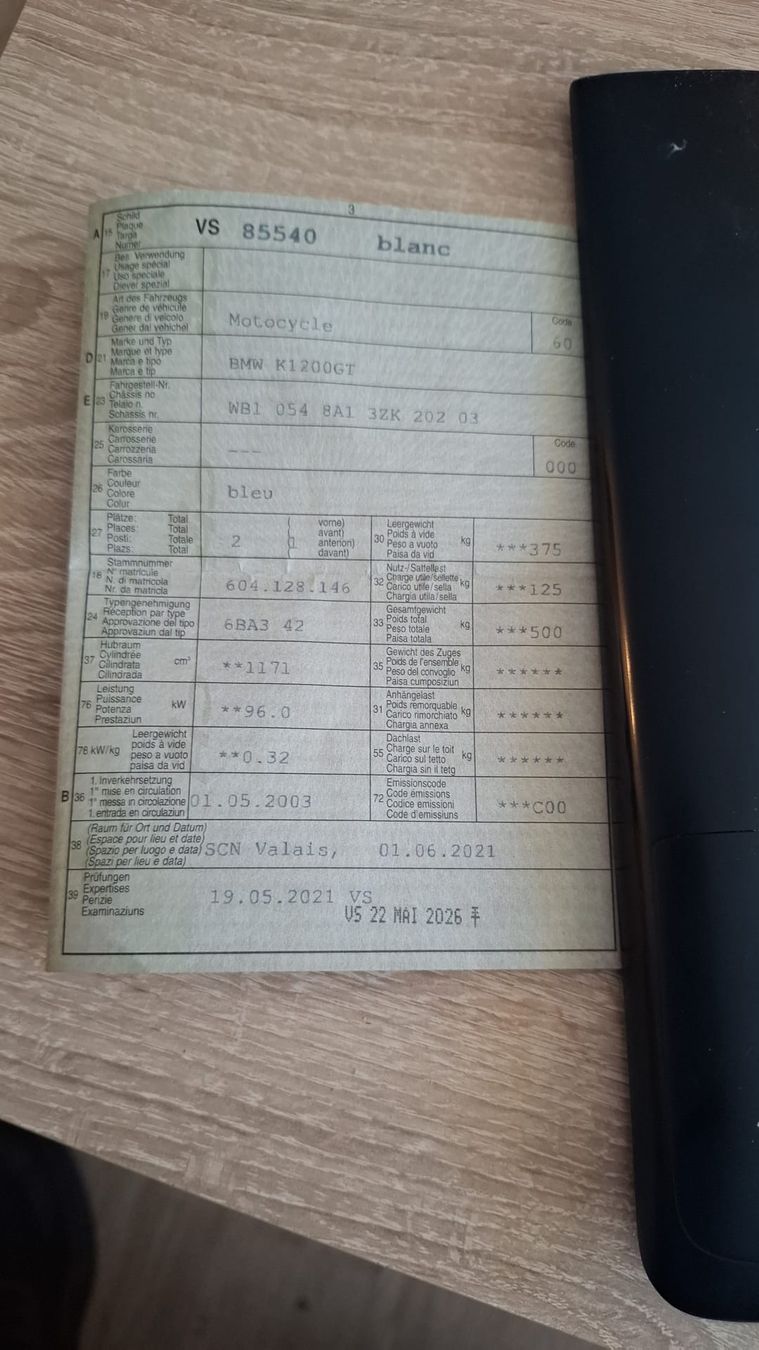 3
A 15 Schild Plaque Targa Numer VS 85540 blanc
17 Bes. Verwendung Usage spécial Uso speciale Diever spezial
19 Art des Fahrzeugs Genre de véhicule Genere di veicolo Gener dal vehichel Motocycle Code 60
D 21 Marke und Typ Marque et type Marca e tipo Marca e tip BMW K1200GT
E 23 Fahrgestell-Nr. Châssis no Telaio n. Schassis nr. WB1 054 8A1 3ZK 202 03
25 Karosserie Carrosserie Carrozzeria Carossaria --- Code 000
26 Farbe Couleur Colore Colur bleu
27 Plätze: Total Places: Total Posti: Totale Plazs: Total 2 ( 1 vorne) avant) anteriori) davant)
30 Leergewicht Poids à vide Peso a vuoto Paisa da vid kg ***375
18 Stammnummer N° matricule N. di matricola Nr. da matricla 604.128.146
32 Nutz-/Sattellast Charge utile/sellette Carico utile/sella Chargia utila/sella kg ***125
24 Typengenehmigung Réception par type Approvazione del tipo Approvaziun dal tip 6BA3 42
33 Gesamtgewicht Poids total Peso totale Paisa totala kg ***500
37 Hubraum Cylindrée Cilindrata Cilindrada cm³ **1171
35 Gewicht des Zuges Poids de l'ensemble Peso del convoglio Paisa cumposiziun kg ******
76 Leistung Puissance Potenza Prestaziun kW **96.0
31 Anhängelast Poids remorquable Carico rimorchiato Chargia annexa kg ******
78 kW/kg Leergewicht poids à vide peso a vuoto paisa da vid **0.32
55 Dachlast Charge sur le toit Carico sul tetto Chargia sin il tetg kg ******
B 36 1. Inverkehrsetzung 1re mise en circulation 1a messa in circolazione 1. entrada en circulaziun 01.05.2003
72 Emissionscode Code émissions Codice emissioni Code d'emissiuns ***C00
38 (Raum für Ort und Datum) (Espace pour lieu et date) (Spazio per luogo e data) (Spazi per lieu e data) SCN Valais, 01.06.2021
39 Prüfungen Expertises Perizie Examinaziuns 19.05.2021 VS
VS 22 MAI 2026